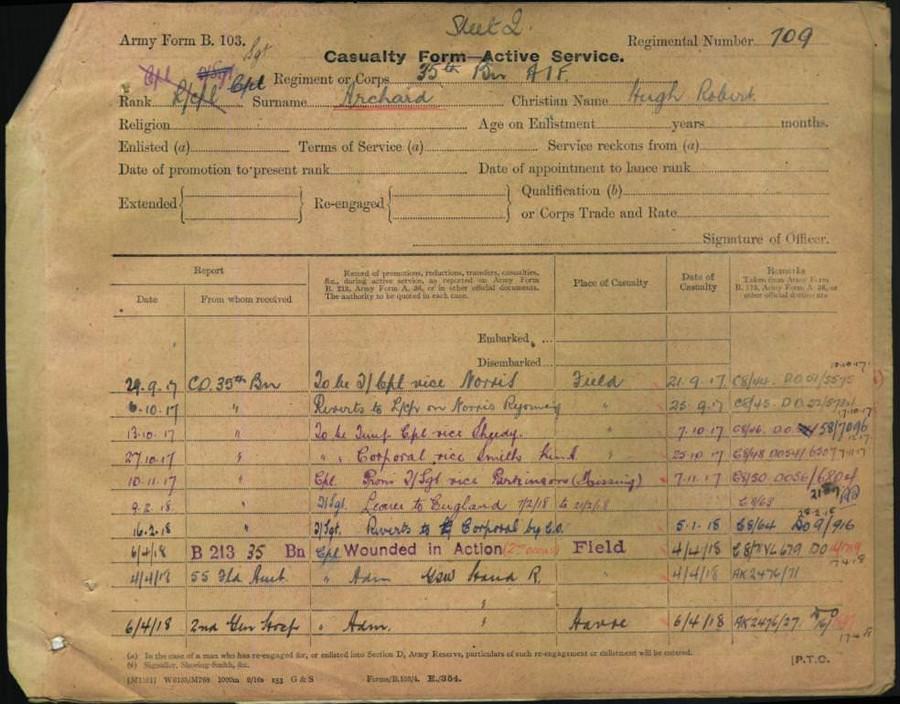 Sheet 2.
Army Form B. 103. Sgt Regimental Number 709
Casualty Form—Active Service.
Cpl Cpl Regiment or Corps 35th Bn AIF.
Rank L/Cpl Surname Archard Christian Name Hugh Robert
Religion Age on Enlistment years months.
Enlisted (a) Terms of Service (a) Service reckons from (a)
Date of promotion to present rank Date of appointment to lance rank
Extended Re-engaged Qualification (b)
or Corps Trade and Rate
Signature of Officer.
Report
Date From whom received
Record of promotions, reductions, transfers, casualties,
&c., during active service, as reported on Army Form
B. 213, Army Form A. 36, or in other official documents.
The authority to be quoted in each case.
Place of Casualty
Date of
Casualty
Remarks
Taken from Army Form
B. 213, Army Form A. 36, or
other official documents
Embarked
Disembarked
29.9.17 CO. 35th Bn To be T/Cpl vice Norris Field 21.9.17
6.10.17 " Reverts to L/Cpl on Norris Rejoining " 25.9.17
13.10.17 " To be Temp. Cpl vice Sheedy. " 7.10.17
27.10.17 " " Corporal vice Smells " 25.10.17
10.11.17 " Cpl Prom T/Sgt vice (Missing) " 7.11.17
9.2.18 " T/Sgt. Leave to England 7/2/18 to 21/2/18 C8/63
16.2.18 " T/Sgt. Reverts to Corporal by C.O. " 5.1.18 C8/64 DO 9/916
6/4/18 B 213 35 Bn Cpl Wounded in Action Field 4/4/18
4/4/18 55 Fld Amb. " Adm GSW Hand R. " 4/4/18 AK 2476/71
6/4/18 2nd Gen Hosp " Adm. " Havre 6/4/18 AK 2476/27.
(a) In the case of a man who has re-engaged for, or enlisted into Section D, Army Reserve, particulars of such re-engagement or enlistment will be entered.
(b) Signaller, Shoeing-Smith, &c.
[P.T.O.
1000m 9/16s G & S Forms/B.103/4. E./354.